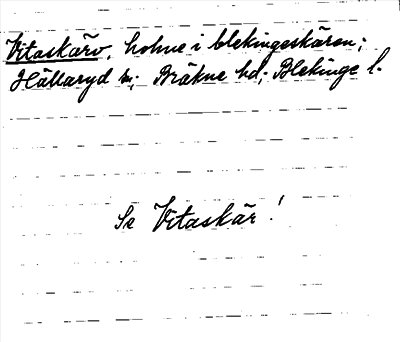 Vitaskärv, holme i blekingeskären;
Hällaryd sn; Bräkne hd; Blekinge l.
Se Vitaskär!